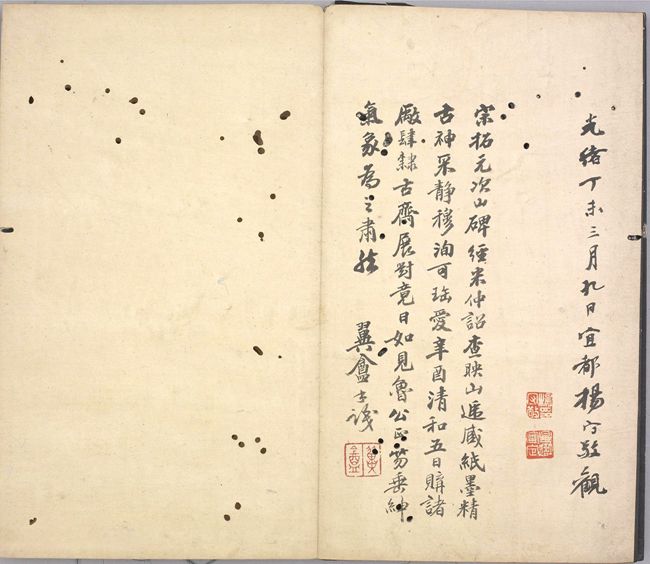 光緒丁未三月九日宜都楊守敬觀
宋拓元次山碑經米仲詔查映山遞藏紙墨精
古神采靜穆洵可珍愛辛酉清和五日購諸
廠肆隸古齋展對竟日如見魯公正笏垂紳
氣象為之肅然
翼盦士識